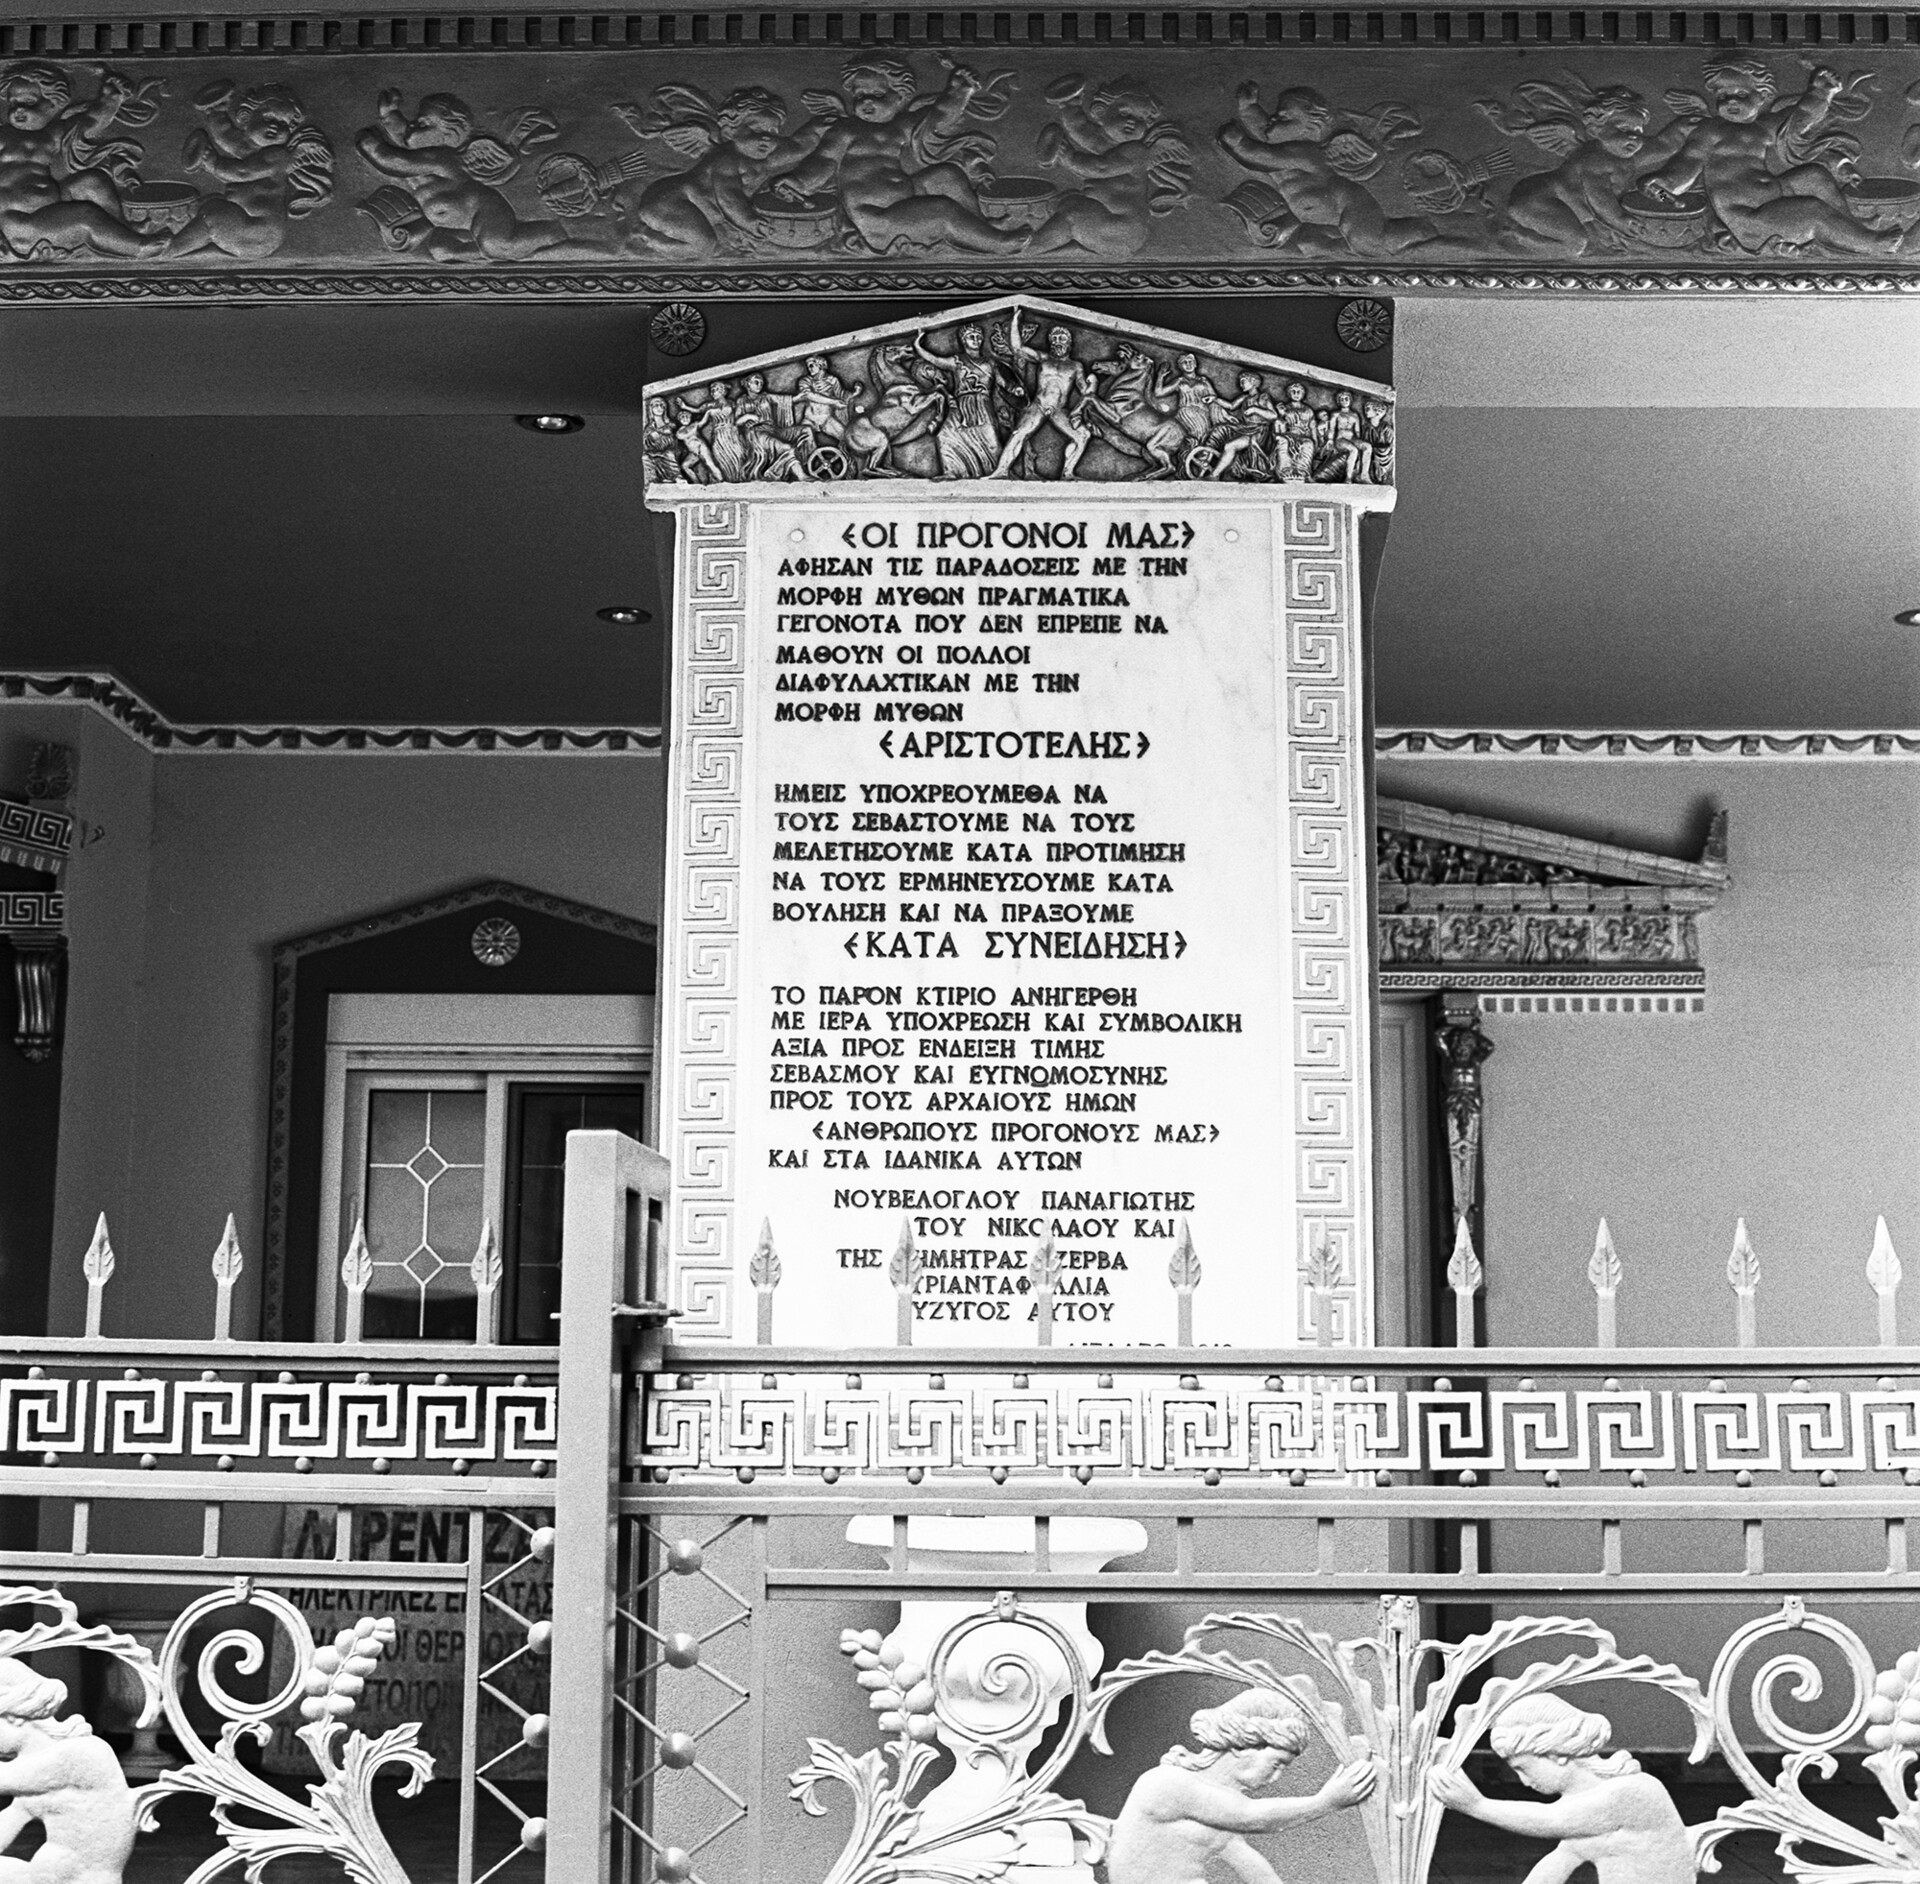 <ΟΙ ΠΡΟΓΟΝΟΙ ΜΑΣ>
ΑΦΗΣΑΝ ΤΙΣ ΠΑΡΑΔΟΣΕΙΣ ΜΕ ΤΗΝ
ΜΟΡΦΗ ΜΥΘΩΝ ΠΡΑΓΜΑΤΙΚΑ
ΓΕΓΟΝΟΤΑ ΠΟΥ ΔΕΝ ΕΠΡΕΠΕ ΝΑ
ΜΑΘΟΥΝ ΟΙ ΠΟΛΛΟΙ
ΔΙΑΦΥΛΑΧΤΙΚΑΝ ΜΕ ΤΗΝ
ΜΟΡΦΗ ΜΥΘΩΝ
<ΑΡΙΣΤΟΤΕΛΗΣ>
ΗΜΕΙΣ ΥΠΟΧΡΕΟΥΜΕΘΑ ΝΑ
ΤΟΥΣ ΣΕΒΑΣΤΟΥΜΕ ΝΑ ΤΟΥΣ
ΜΕΛΕΤΗΣΟΥΜΕ ΚΑΤΑ ΠΡΟΤΙΜΗΣΗ
ΝΑ ΤΟΥΣ ΕΡΜΗΝΕΥΣΟΥΜΕ ΚΑΤΑ
ΒΟΥΛΗΣΗ ΚΑΙ ΝΑ ΠΡΑΞΟΥΜΕ
<ΚΑΤΑ ΣΥΝΕΙΔΗΣΗ>
ΤΟ ΠΑΡΟΝ ΚΤΙΡΙΟ ΑΝΗΓΕΡΘΗ
ΜΕ ΙΕΡΑ ΥΠΟΧΡΕΩΣΗ ΚΑΙ ΣΥΜΒΟΛΙΚΗ
ΑΞΙΑ ΠΡΟΣ ΕΝΔΕΙΞΗ ΤΙΜΗΣ
ΣΕΒΑΣΜΟΥ ΚΑΙ ΕΥΓΝΩΜΟΣΥΝΗΣ
ΠΡΟΣ ΤΟΥΣ ΑΡΧΑΙΟΥΣ ΗΜΩΝ
<ΑΝΘΡΩΠΟΥΣ ΠΡΟΓΟΝΟΥΣ ΜΑΣ>
ΚΑΙ ΣΤΑ ΙΔΑΝΙΚΑ ΑΥΤΩΝ
ΝΟΥΒΕΛΟΓΛΟΥ ΠΑΝΑΓΙΩΤΗΣ
ΤΟΥ ΝΙΚΟΛΑΟΥ ΚΑΙ
ΤΗΣ ΔΗΜΗΤΡΑΣ
ΑΥΤΟΥ